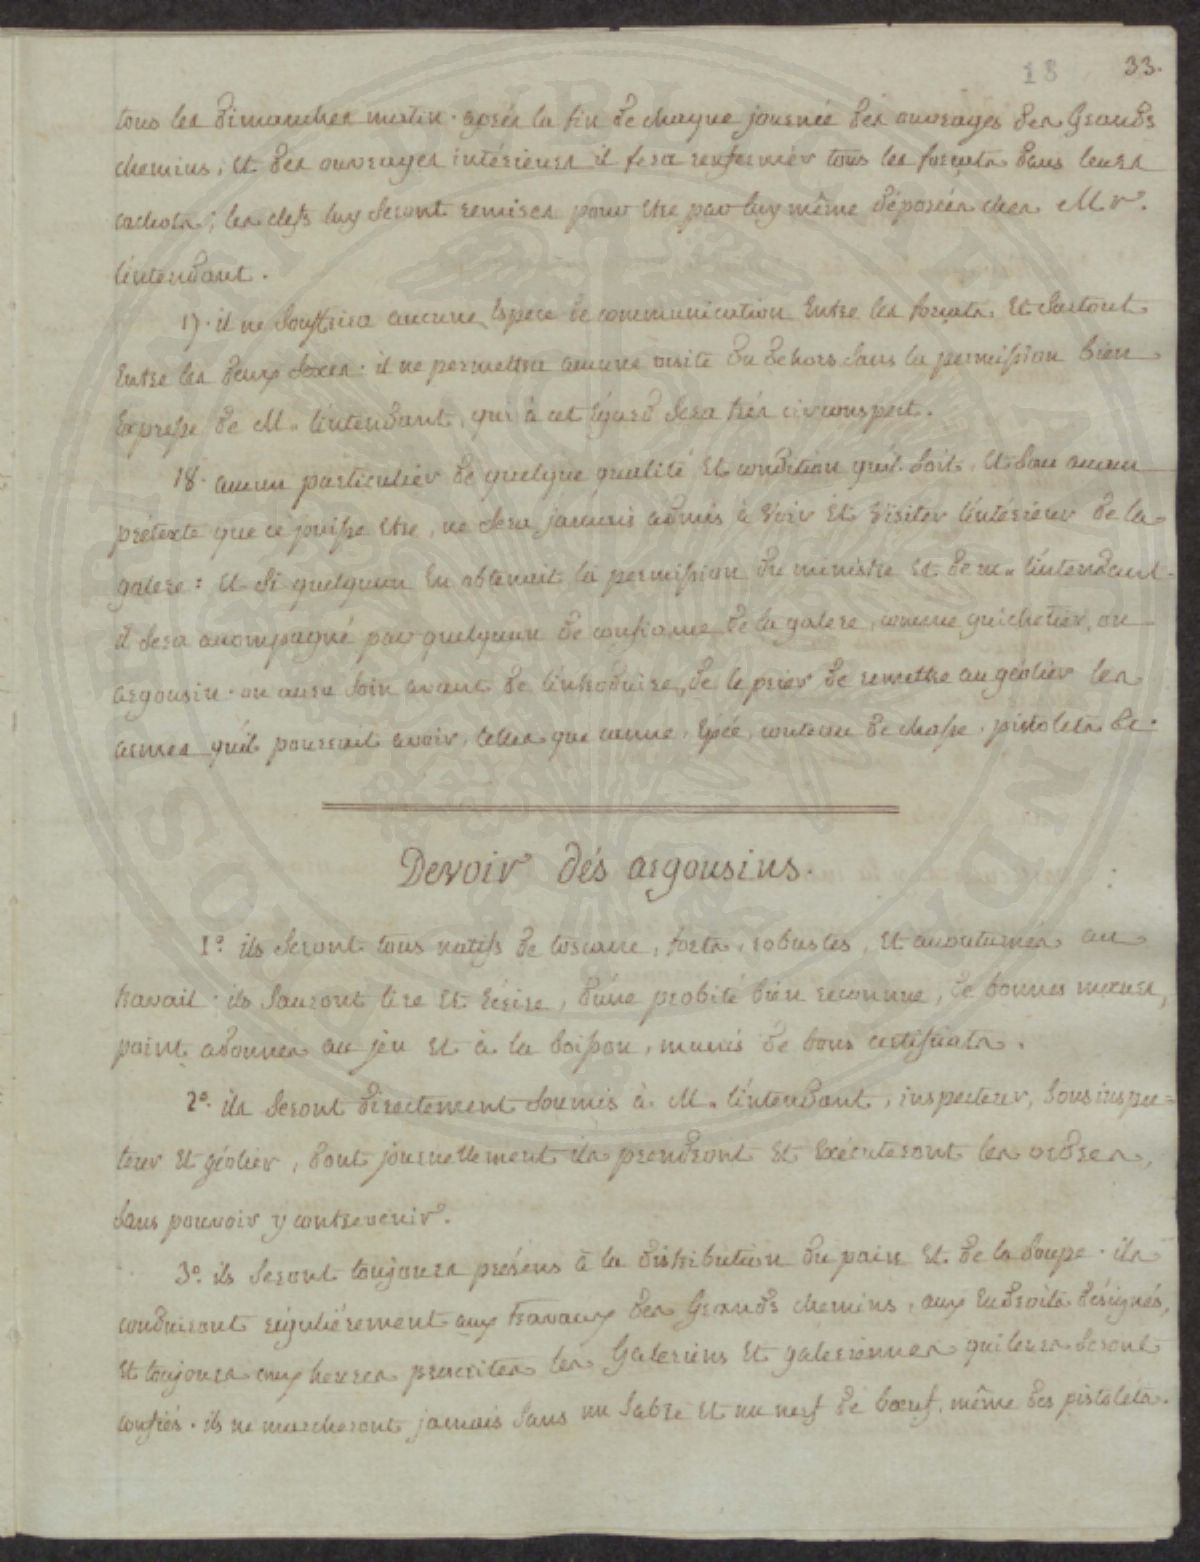 18 33.
tous les dimanches matin. après la fin de chaque journée des ouvrages des Grands
chemins, et des ouvrages intérieurs il fera renfermér tous les forçats dans leurs
cachots, les clefs luy seront remises pour être par luy même déposées chez Mr.
l'intendant.
17. il ne souffrira aucune Espece de communication Entre les forçats, Et surtout
Entre les deux sexes. il ne permettra aucune visite du dehors sans la permission bien
Expresse de M. l'intendant, qui à cet Egard sera très circonspect.
18. aucun particuliér de quelque qualité Et condition qu'il soit, Et sous aucun
prétexte que ce puisse Etre, ne sera jamais admis à Voir Et Visiter l'intérieur de la
galere: Et si quelqu'un En obtenait la permission du ministre Et de m. l'intendant
il sera accompagné par quelqu'un de confiance de la galere, comme guichetier, ou
argousin. on aura soin avant de l'introduire, de le prier de remettre au géolier les
armes qu'il pourrait avoir, telles que canne, Epée, couteau de chasse, pistolets &c.
Devoir dés argousins.
1.º ils seront tous natifs de toscane, forts, robustes, Et accoutumés au
travail. ils sauront lire Et Ecrire, d'une probité bien reconnue, de bonnes mœurs,
point adonnés au jeu Et à la boisson, munis de bons certificats.
2.º ils seront directement soumis à M. l'intendant, inspecteur, sous inspec=
teur Et géolier, dont journellement ils prendront Et Exécuteront les ordres,
sans pouvoir y contrevenir.
3.º ils seront toujours présens à la distribution du pain Et de la soupe. ils
conduiront réguliérement aux travaux des Grands chemins, aux Endroits désignés,
Et toujours aux heures prescrites les Galeriens Et galeriennes qui leurs seront
confiés. ils ne marcheront jamais sans un sabre Et un nerf de bœuf, même des pistolets.